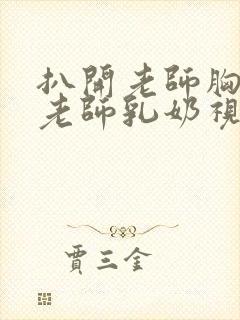 扒開老師胸
老師乳奶視
賈三金